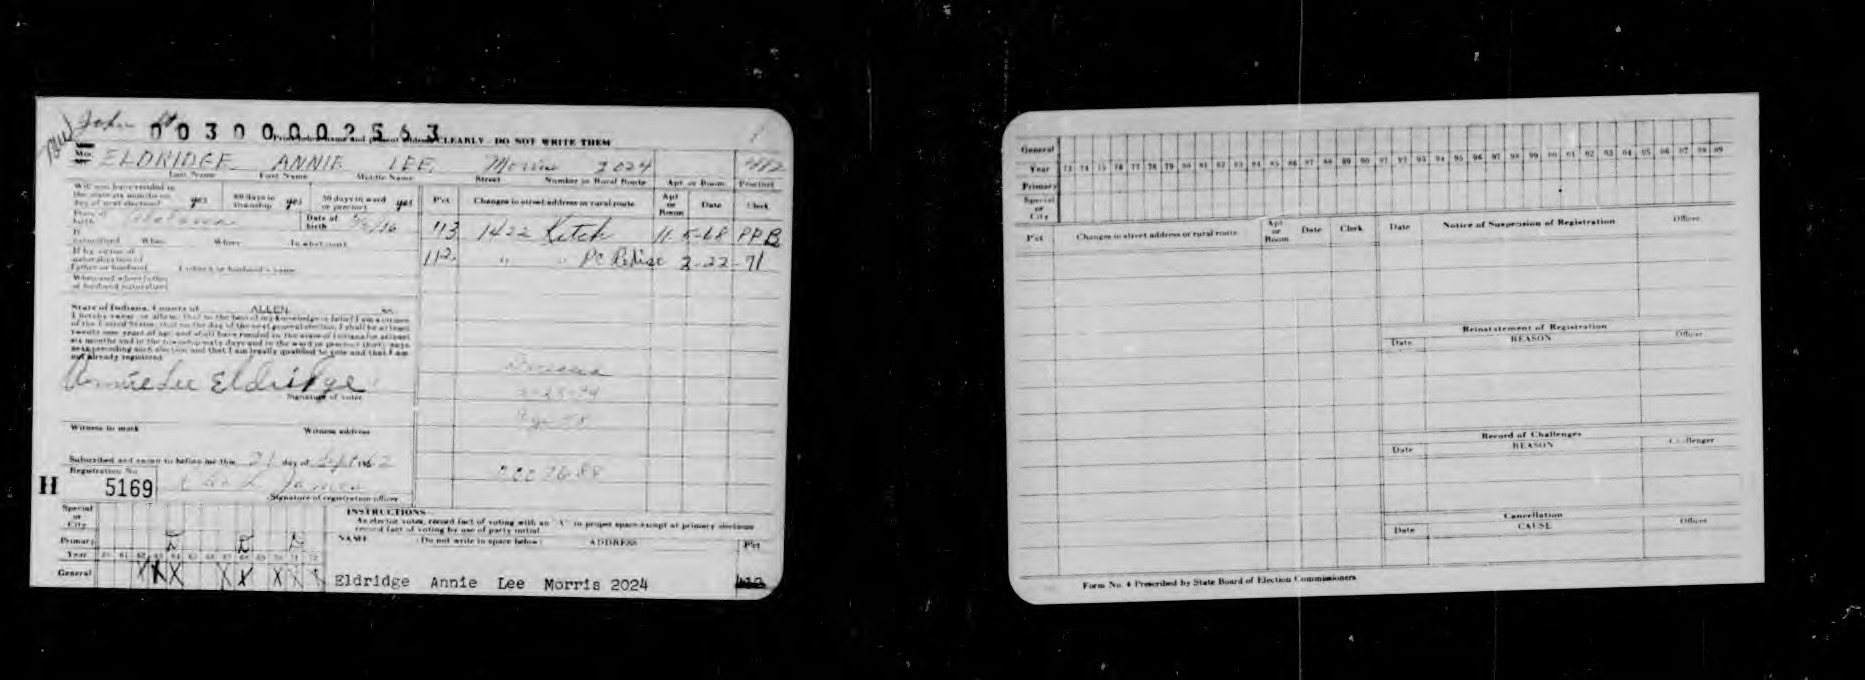 John
0030000 02563
CLEARLY - DO NOT WRITE THEM
ELDRIDGE ANNIE LEE Morris 2024
Last Name First Name Middle Name Street Number or Rural Route Apt or Room Precinct
Will you have resided in the state six months on day of next election? yes 60 days in Township yes 30 days in ward or precinct yes
Pct Changes in street address or rural route Apt or Room Date Clerk
Place of birth Date of birth
If naturalized When Where In what court
113 1422 Ketch 11-5-68 PRB
If by virtue of naturalization of Father or husband Father's or husband's name
112 " " 2-22-71
When and where father or husband naturalized
State of Indiana, County of ALLEN, SS:
I hereby swear or affirm that to the best of my knowledge or belief I am a citizen
of the United States; that on the day of the next general election, I shall be at least
twenty-one years of age and shall have resided in the state of Indiana for at least
six months and in the township sixty days and in the ward or precinct thirty days
next preceding such election and that I am legally qualified to vote and that I am
not already registered.
Annie Lee Eldridge
Signature of voter
Witness to mark Witness address
Subscribed and sworn to before me this 21 day of Sept 1962
Registration No.
H 5169
Signature of registration officer
Special or City
INSTRUCTIONS
As elector votes, record fact of voting with an "X" in proper space except at primary elections
record fact of voting by use of party initial
Primary
NAME (Do not write in space below) ADDRESS Pct
Year 60 61 62 63 64 65 66 67 68 69 70 71 72
General X X X X X X
Eldridge Annie Lee Morris 2024
General
Year 73 74 75 76 77 78 79 80 81 82 83 84 85 86 87 88 89 90 91 92 93 94 95 96 97 98 99 00 01 02 03 04 05 06 07 08 09
Primary
Special or City
Pct Changes in street address or rural route Apt or Room Date Clerk
Date Notice of Suspension of Registration Officer
Reinstatement of Registration
Date REASON Officer
Record of Challenges
Date REASON Challenger
Cancellation
Date CAUSE Officer
Form No. 4 Prescribed by State Board of Election Commissioners